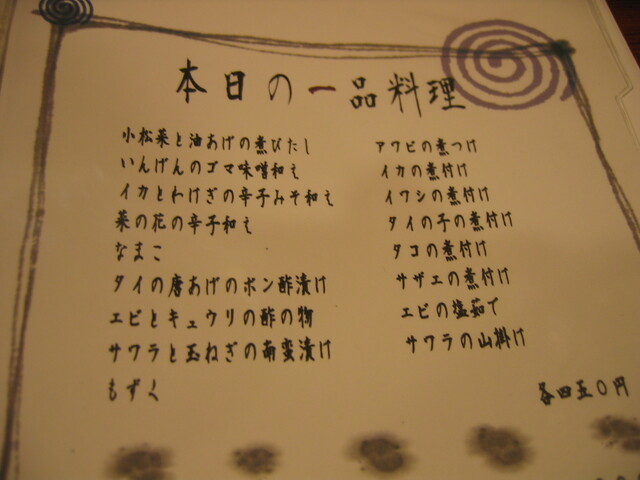 本日の一品料理
小松菜と油あげの煮びたし
いんげんのゴマ味噌和え
イカとわけぎの辛子みそ和え
菜の花の辛子和え
なまこ
タイの唐あげのポン酢漬け
エビとキュウリの酢の物
サワラと玉ねぎの南蛮漬け
もずく
アワビの煮つけ
イカの煮付け
イワシの煮付け
タイの子の煮付け
タコの煮付け
サザエの煮付け
エビの塩茹で
サワラの山掛け
各四五０円